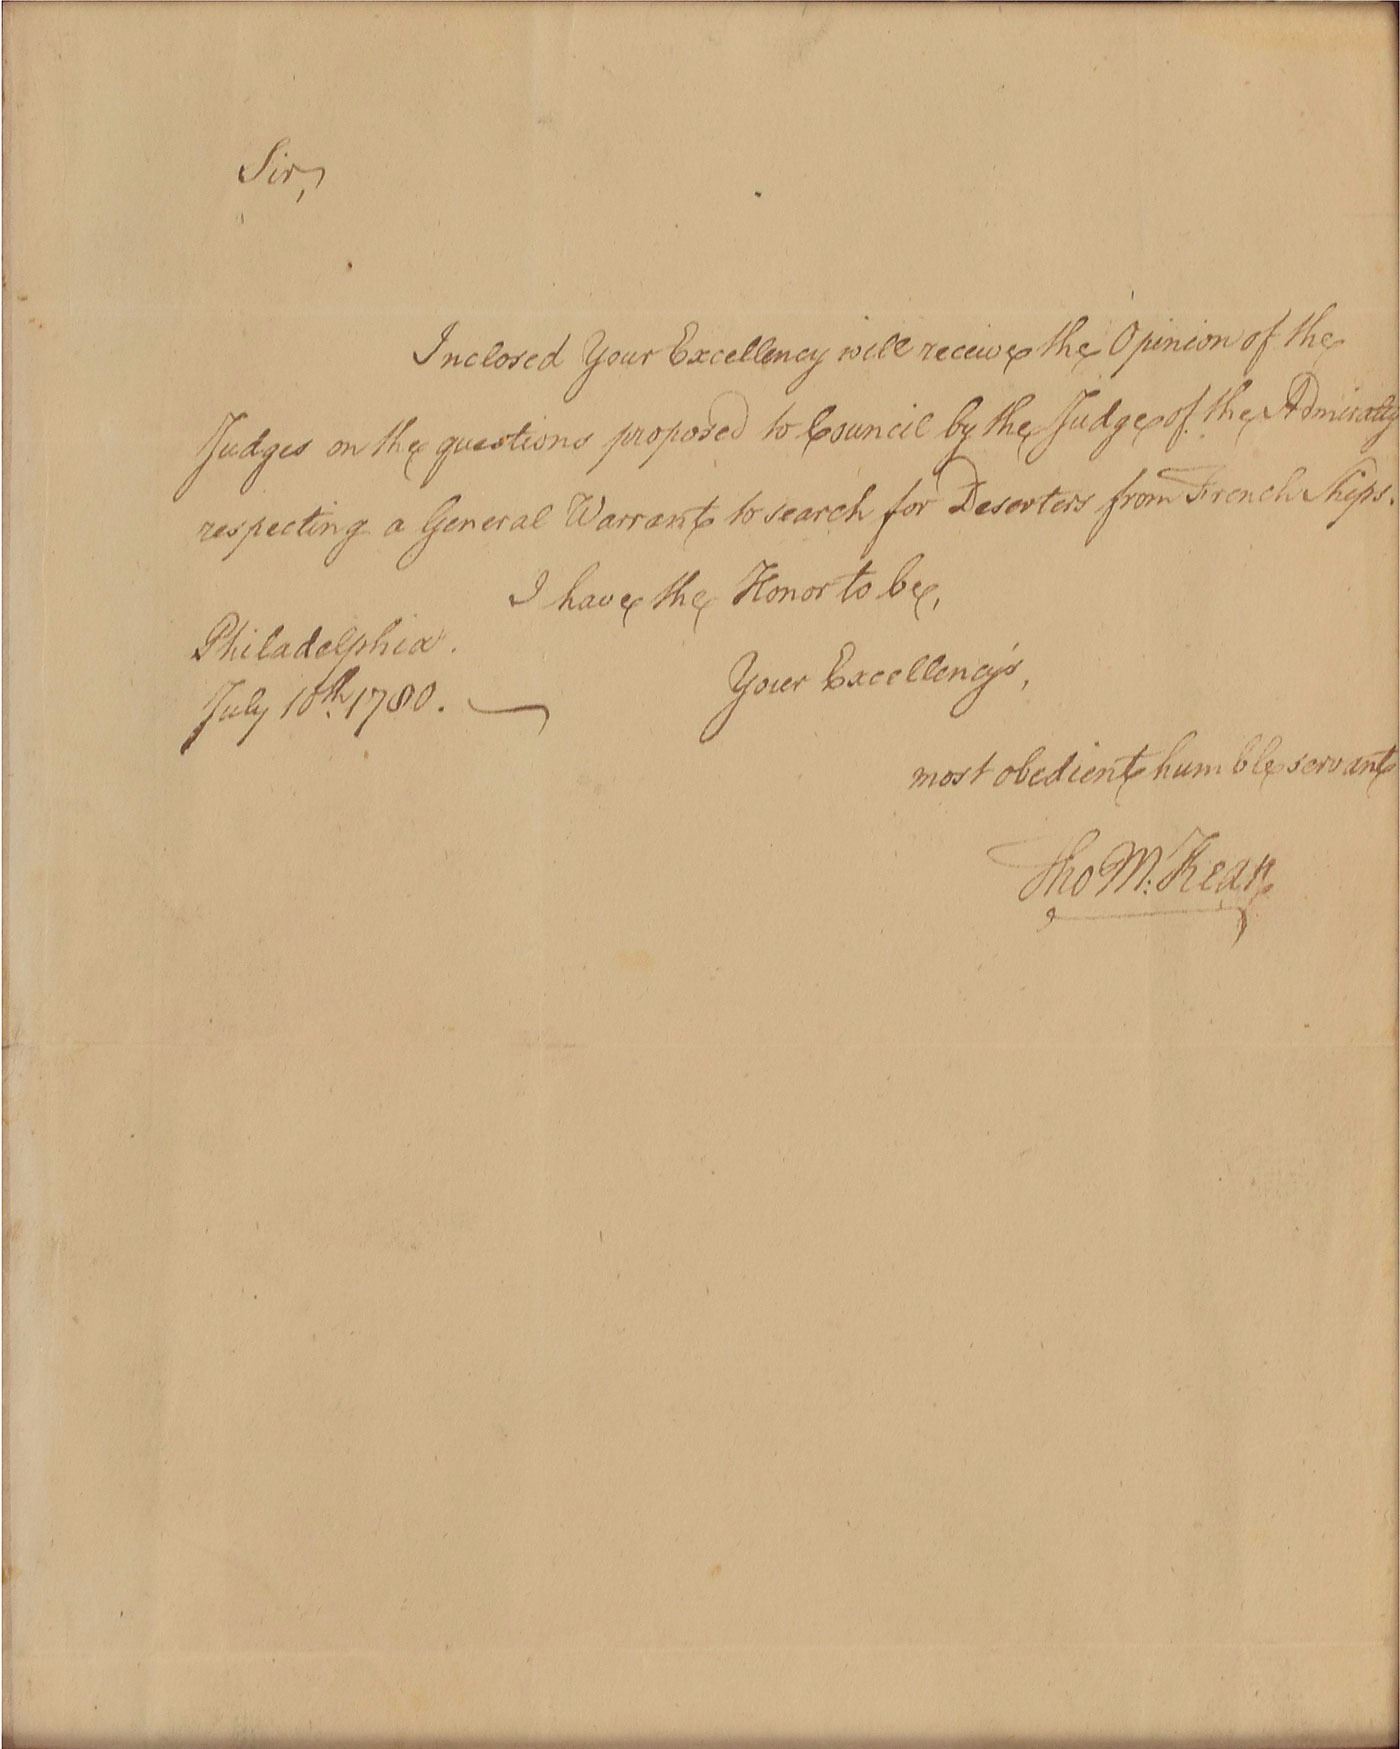 Sir,
Inclosed Your Excellency will receive the Opinion of the
Judges on the questions proposed to Council by the Judge of the Admiralty
respecting a General Warrant to search for Deserters from French Ships.
I have the Honor to be,
Philadelphia.
Your Excellency's,
July 10th. 1780.
most obedient humble servant
Tho M:Kean